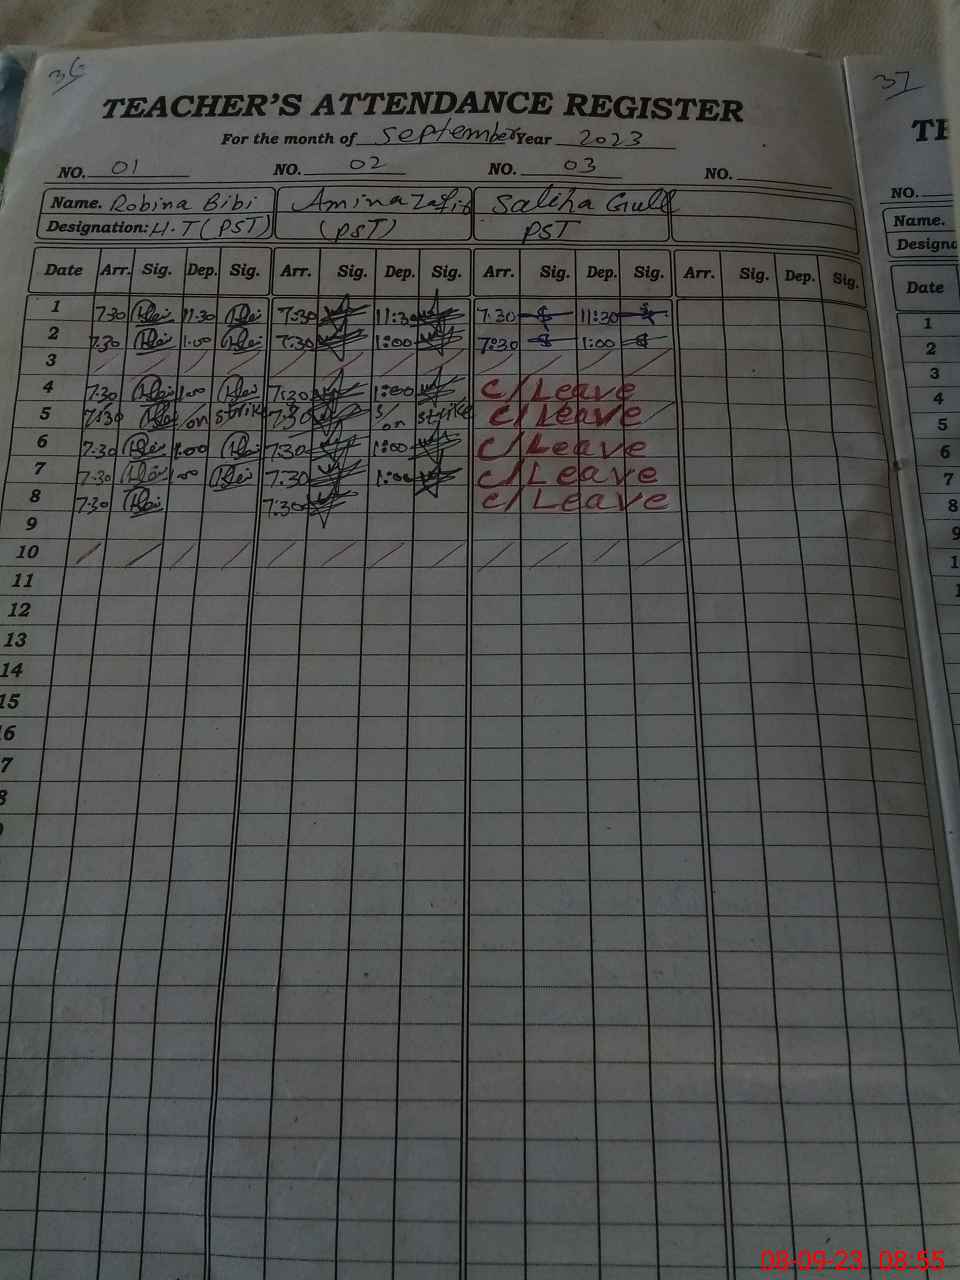 36
TEACHER'S ATTENDANCE REGISTER
For the month of September Year 2023
NO. 01 NO. 02 NO. 03 NO.
Name. Robina Bibi Amina Zafif Saliha Gull
Designation: H.T (PST) (PST) PST
Date Arr. Sig. Dep. Sig. Arr. Sig. Dep. Sig. Arr. Sig. Dep. Sig. Arr. Sig. Dep. Sig.
1 7:30 11:30 7:30 11:30 7:30 11:30
2 7:30 1:00 7:30 1:00 7:30 1:00
3
4 7:30 1:00 7:30 1:00 C/Leave
5 7:30 on strike 7:30 on strike C/Leave
6 7:30 1:00 7:30 1:00 C/Leave
7 7:30 1:00 7:30 1:00 C/Leave
8 7:30 7:30 C/Leave
9
10
11
12
13
14
15
16
7
8
37
TE
NO.
Name.
Designa
Date
1
2
3
4
5
6
7
8
9
1
08-09-23 08:55